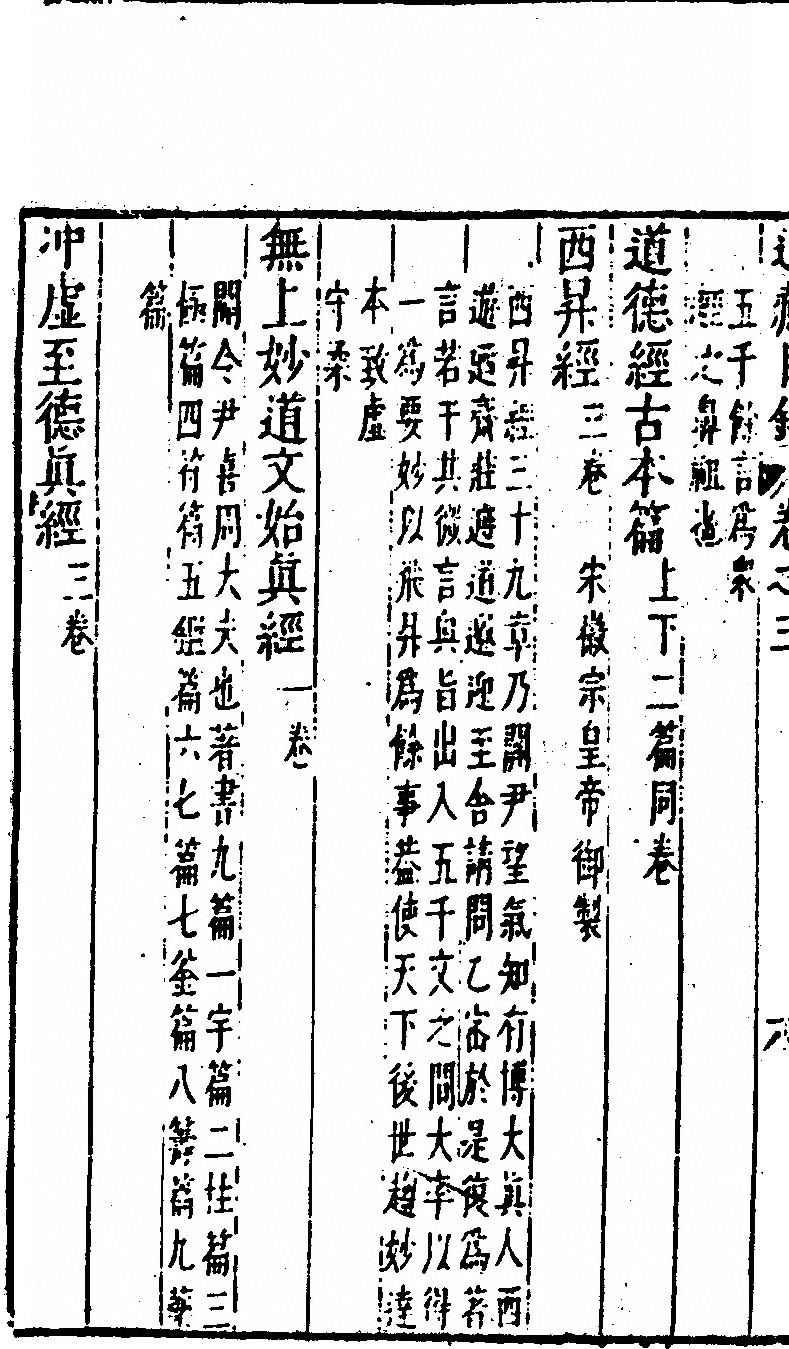 道藏目錄 卷之三 六
五千餘言爲衆
經之鼻祖也
道德經古本篇 上下二篇同卷
西昇經 三卷 宋徽宗皇帝御製
西昇經三十九章乃關尹望氣知有博大眞人西
遊迺齋莊遵道邀迎至舍請問乙密於是復爲著
言若干其微言奥旨出入五千文之間大率以得
一爲要妙以飛昇爲餘事葢使天下後世趨妙達
本致虛
守柔
無上妙道文始眞經 一卷
關令尹喜周大夫也著書九篇一宇篇二柱篇三
極篇四符篇五鑑篇六匕篇七釜篇八籌篇九藥
篇
冲虛至德眞經 三卷